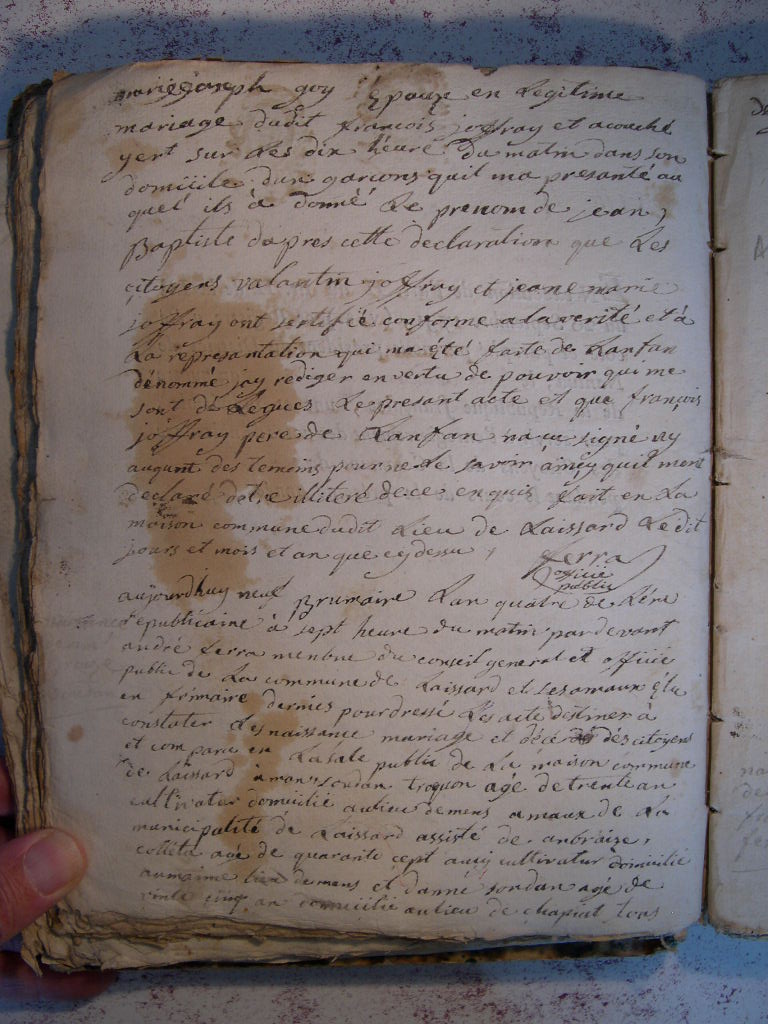 marie joseph goy Epouze en Legitime
mariage dudit francois joffray et acouché
yert sur Les dix heure du matin dans son
domicile dun garcons quil ma presanté au
quel ils à donné Le prenom de jean,
Baptiste dapres cette declaration que Les
çitoyens valantin joffray et jeane marie
joffray ont sertifié conforme a la verité et à
La representation qui ma été faite de Lanfan
dénommé jay rediger en vertu de pouvoir qui me
sont délégues Le presant acte et que françois
joffray pere de Lanfan na eu signé ny
augunt des temoins pour ne Le savoir ainçy quil mont
declaré detre illiteré de ce enquis fait en La
maison commune dudit Lieu de Laissard Le dit
jours et mois et an que cy dessu, ferra
officié
public
aujourdhuy neuf Brumaire Lan quatre de Lére
republicaine à sept heure du matin pardevant
andré ferra menbre du conseil general et officié
public de La commune de Laissard et ses amaux élu
en frimaire dernies pour dressé Les acte destiner à
constater Les naissance mariage et décé des citoyens
et comparu en La sale public de La maison commune
de Laissard jourdan agé de trente an
cultivatur domicilié au lieu de mens amaux de La
municipalité de Laissard assisté de anbraise,
colleta agé de quarante cept aussy cultivatur domicilié
au maime lieu de mens et danné jourdan agé de
vinte cinq an domicilié au lieu de chapiat tous